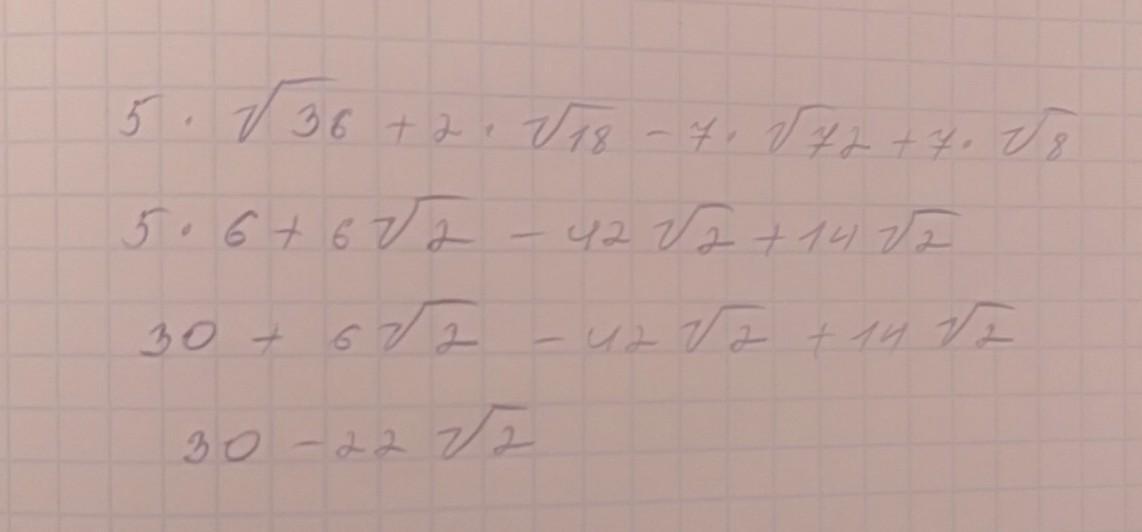 5 · √36 + 2 · √18 - 7 · √72 + 7 · √8
5 · 6 + 6√2 - 42√2 + 14√2
30 + 6√2 - 42√2 + 14√2
30 - 22√2